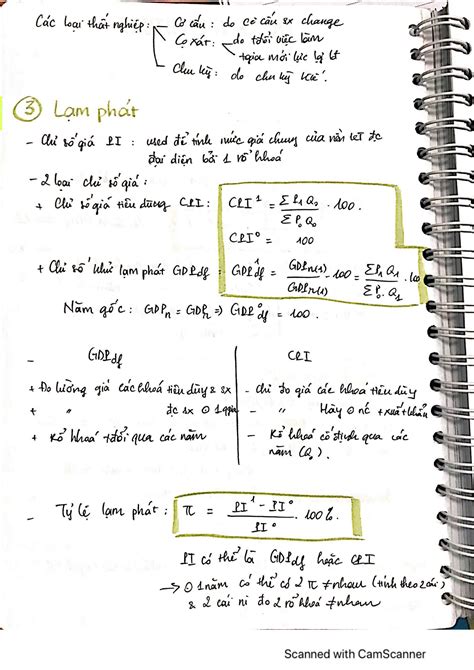 Các loại thất nghiệp: Cơ cấu: do cơ cấu sx change
Cọ xát: do tđổi việc làm
tgia mới lực lg lđ
Chu kỳ: do chu kỳ KTế.
③ Lạm phát
- Chỉ số giá PI: used để tính mức giá chung của nền KT đc
đại diện bởi 1 rổ hhoá
- 2 loại chỉ số giá:
+ Chỉ số giá tiêu dùng CPI: CPI¹ = ΣP₁Q₀ / ΣP₀Q₀ . 100.
CPI⁰ = 100
+ Chỉ số khử lạm phát GDPdf: GDP¹df = GDPn(1) / GDPr(1) . 100 = ΣP₁Q₁ / ΣP₀.Q₁ . 100
Năm gốc: GDPn = GDPr => GDP⁰df = 100.
- GDPdf CPI
+ Đo lường giá các hhoá tiêu dùng & sx - chỉ đo giá các hhoá tiêu dùng
+ " đc sx ở 1 qgia - " Hãy ở nc + xuất khẩu
+ Rổ hhoá tđổi qua các năm - Rổ hhoá cố định qua các
năm (Q₀).
- Tỷ lệ lạm phát: π = PI¹ - PI⁰ / PI⁰ . 100%.
PI có thể là GDPdf hoặc CPI
-> ở 1 năm có thể có 2 π ≠ nhau (tính theo 2 cái)
& 2 cái ni đo 2 rổ hhoá ≠ nhau
Scanned with CamScanner